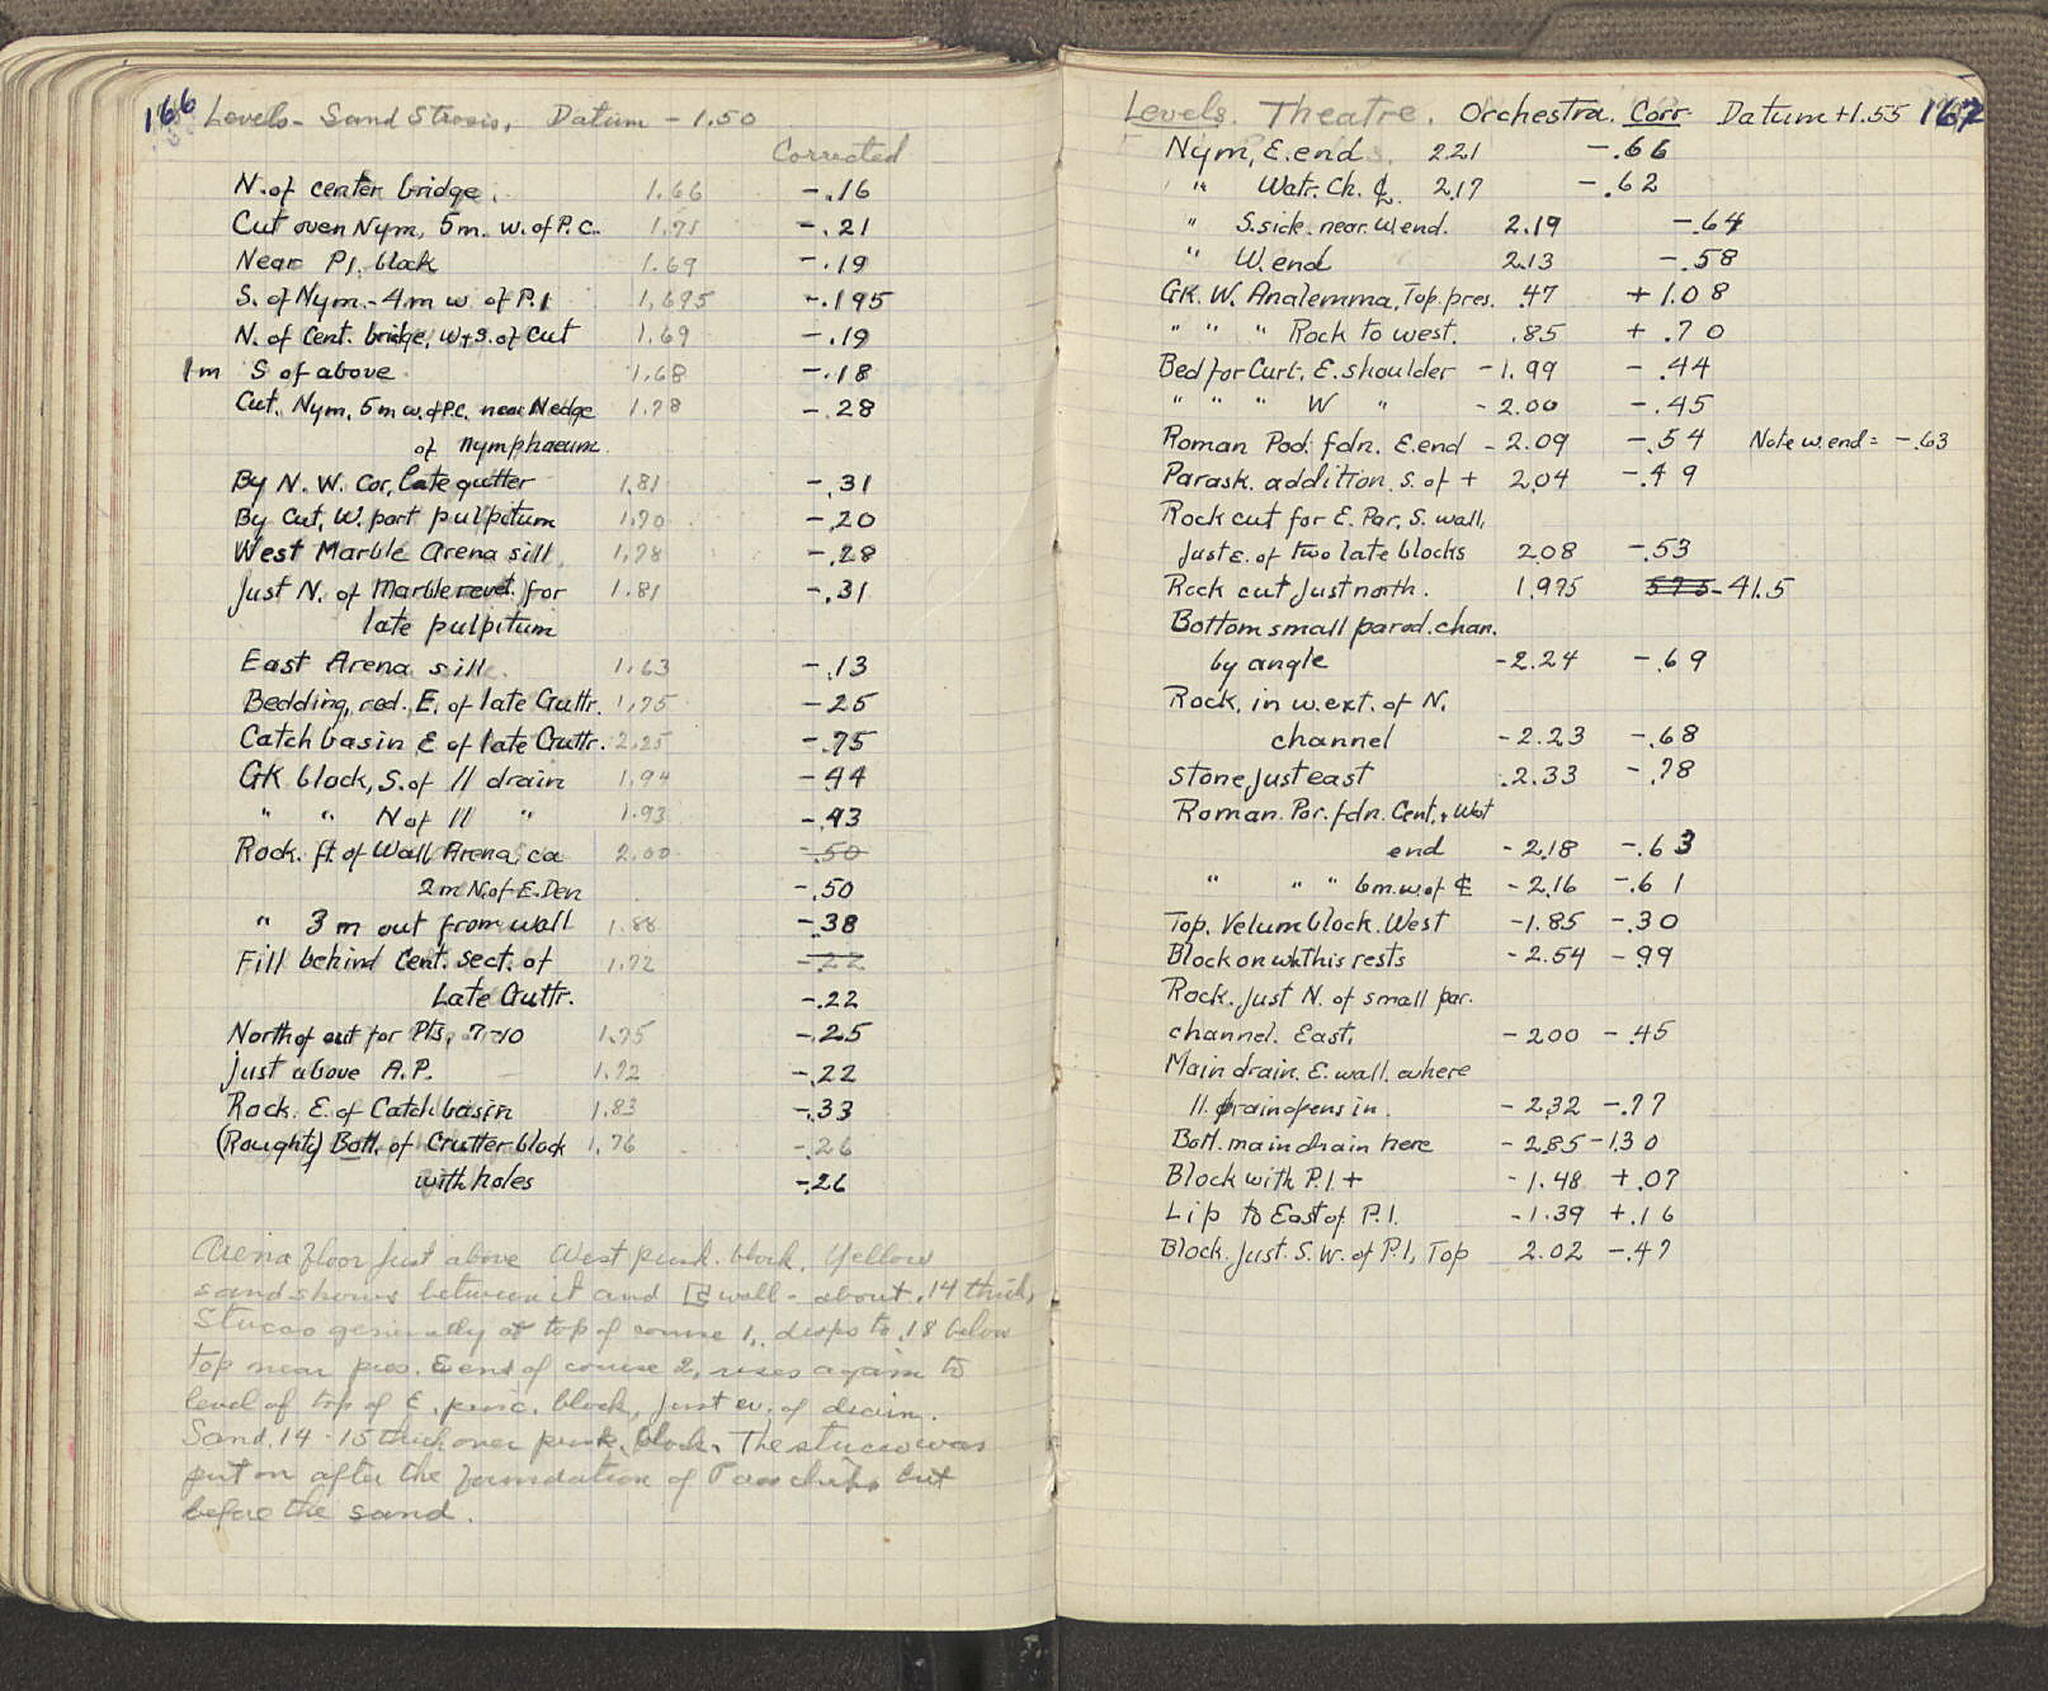 166 Levels - Sand Strosis, Datum - 1.50
Corrected
N. of center bridge. 1.66 -.16
Cut over Nym, 5m. w. of P.C. 1.71 -.21
Near P1, block 1.69 -.19
S. of Nym. - 4m w of P.1 1.695 -.195
N. of Cent. bridge, W+S. of cut 1.69 -.19
1m S of above 1.68 -.18
Cut, Nym, 5m w. of P.C. near N edge 1.78 -.28
of nymphaeum.
By N. W. Cor, late gutter 1.81 -.31
By Cut, W. part pulpitum 1.70 -.20
West Marble Arena sill 1.78 -.28
Just N. of Marble revet. for 1.81 -.31
late pulpitum
East Arena sill. 1.63 -.13
Bedding, red., E. of late Guttr. 1.75 -.25
Catch basin E of late Guttr. 2.25 -.75
GK block, S. of 11 drain 1.94 -.44
" " N of 11 " 1.93 -.43
Rock. ft. of Wall Arena, ca 2.00 -.50
2m N. of E. Den -.50
" 3 m out from wall 1.88 -.38
Fill behind Cent. sect. of 1.72 -.22
Late Guttr. -.22
North of cut for Pts, 7-10 1.75 -.25
Just above A.P. 1.72 -.22
Rock. E. of Catch basin 1.83 -.33
(Roughty) Bott. of Gutter block 1.76 -.26
with holes -.26
Arena floor just above West block. Yellow
sand shows between it and wall - about .14 thick,
Stucco generally at top of course 1, to .18 below
top near pres. E end of course 2, rises again to
level of top of E. block, just w. of drain.
Sand .14 - 15 thick over block. The stucco was
put on after the foundation of but
before the sand.
Levels. Theatre. Orchestra. Corr. Datum +1.55 167
Nym, E. end 2.21 -.66
" Watr. Ch. ℄ 2.17 -.62
" S. side. near W. end. 2.19 -.64
" W. end 2.13 -.58
GK. W. Analemma, Top. pres. .47 +1.08
" " " Rock to west. .85 +.70
Bed for Curt., E. shoulder -1.99 -.44
" " " W " -2.00 -.45
Roman Pod. fdn. E. end -2.09 -.54 Note w. end = -.63
Parask. addition. S. of + 2.04 -.49
Rock cut for E. Par, S. wall,
Just E. of two late blocks 2.08 -.53
Rock cut just north. 1.975 575 -41.5
Bottom small parod. chan.
by angle -2.24 -.69
Rock, in w. ext. of N.
channel -2.23 -.68
Stone, just east -2.33 -.78
Roman. Por. fdn. Cent. + West
end -2.18 -.63
" " " 6m. w. of ℄ -2.16 -.61
Top. Velum block. West -1.85 -.30
Block on wh This rests -2.54 -.99
Rock. Just N. of small par.
channel. East, -2.00 -.45
Main drain. E. wall. where
11. drain opens in. -2.32 -.77
Bott. main drain here -2.85 -1.30
Block with P.1 + -1.48 +.07
Lip to East of P.1. -1.39 +.16
Block. Just. S.W. of P.1, Top 2.02 -.47